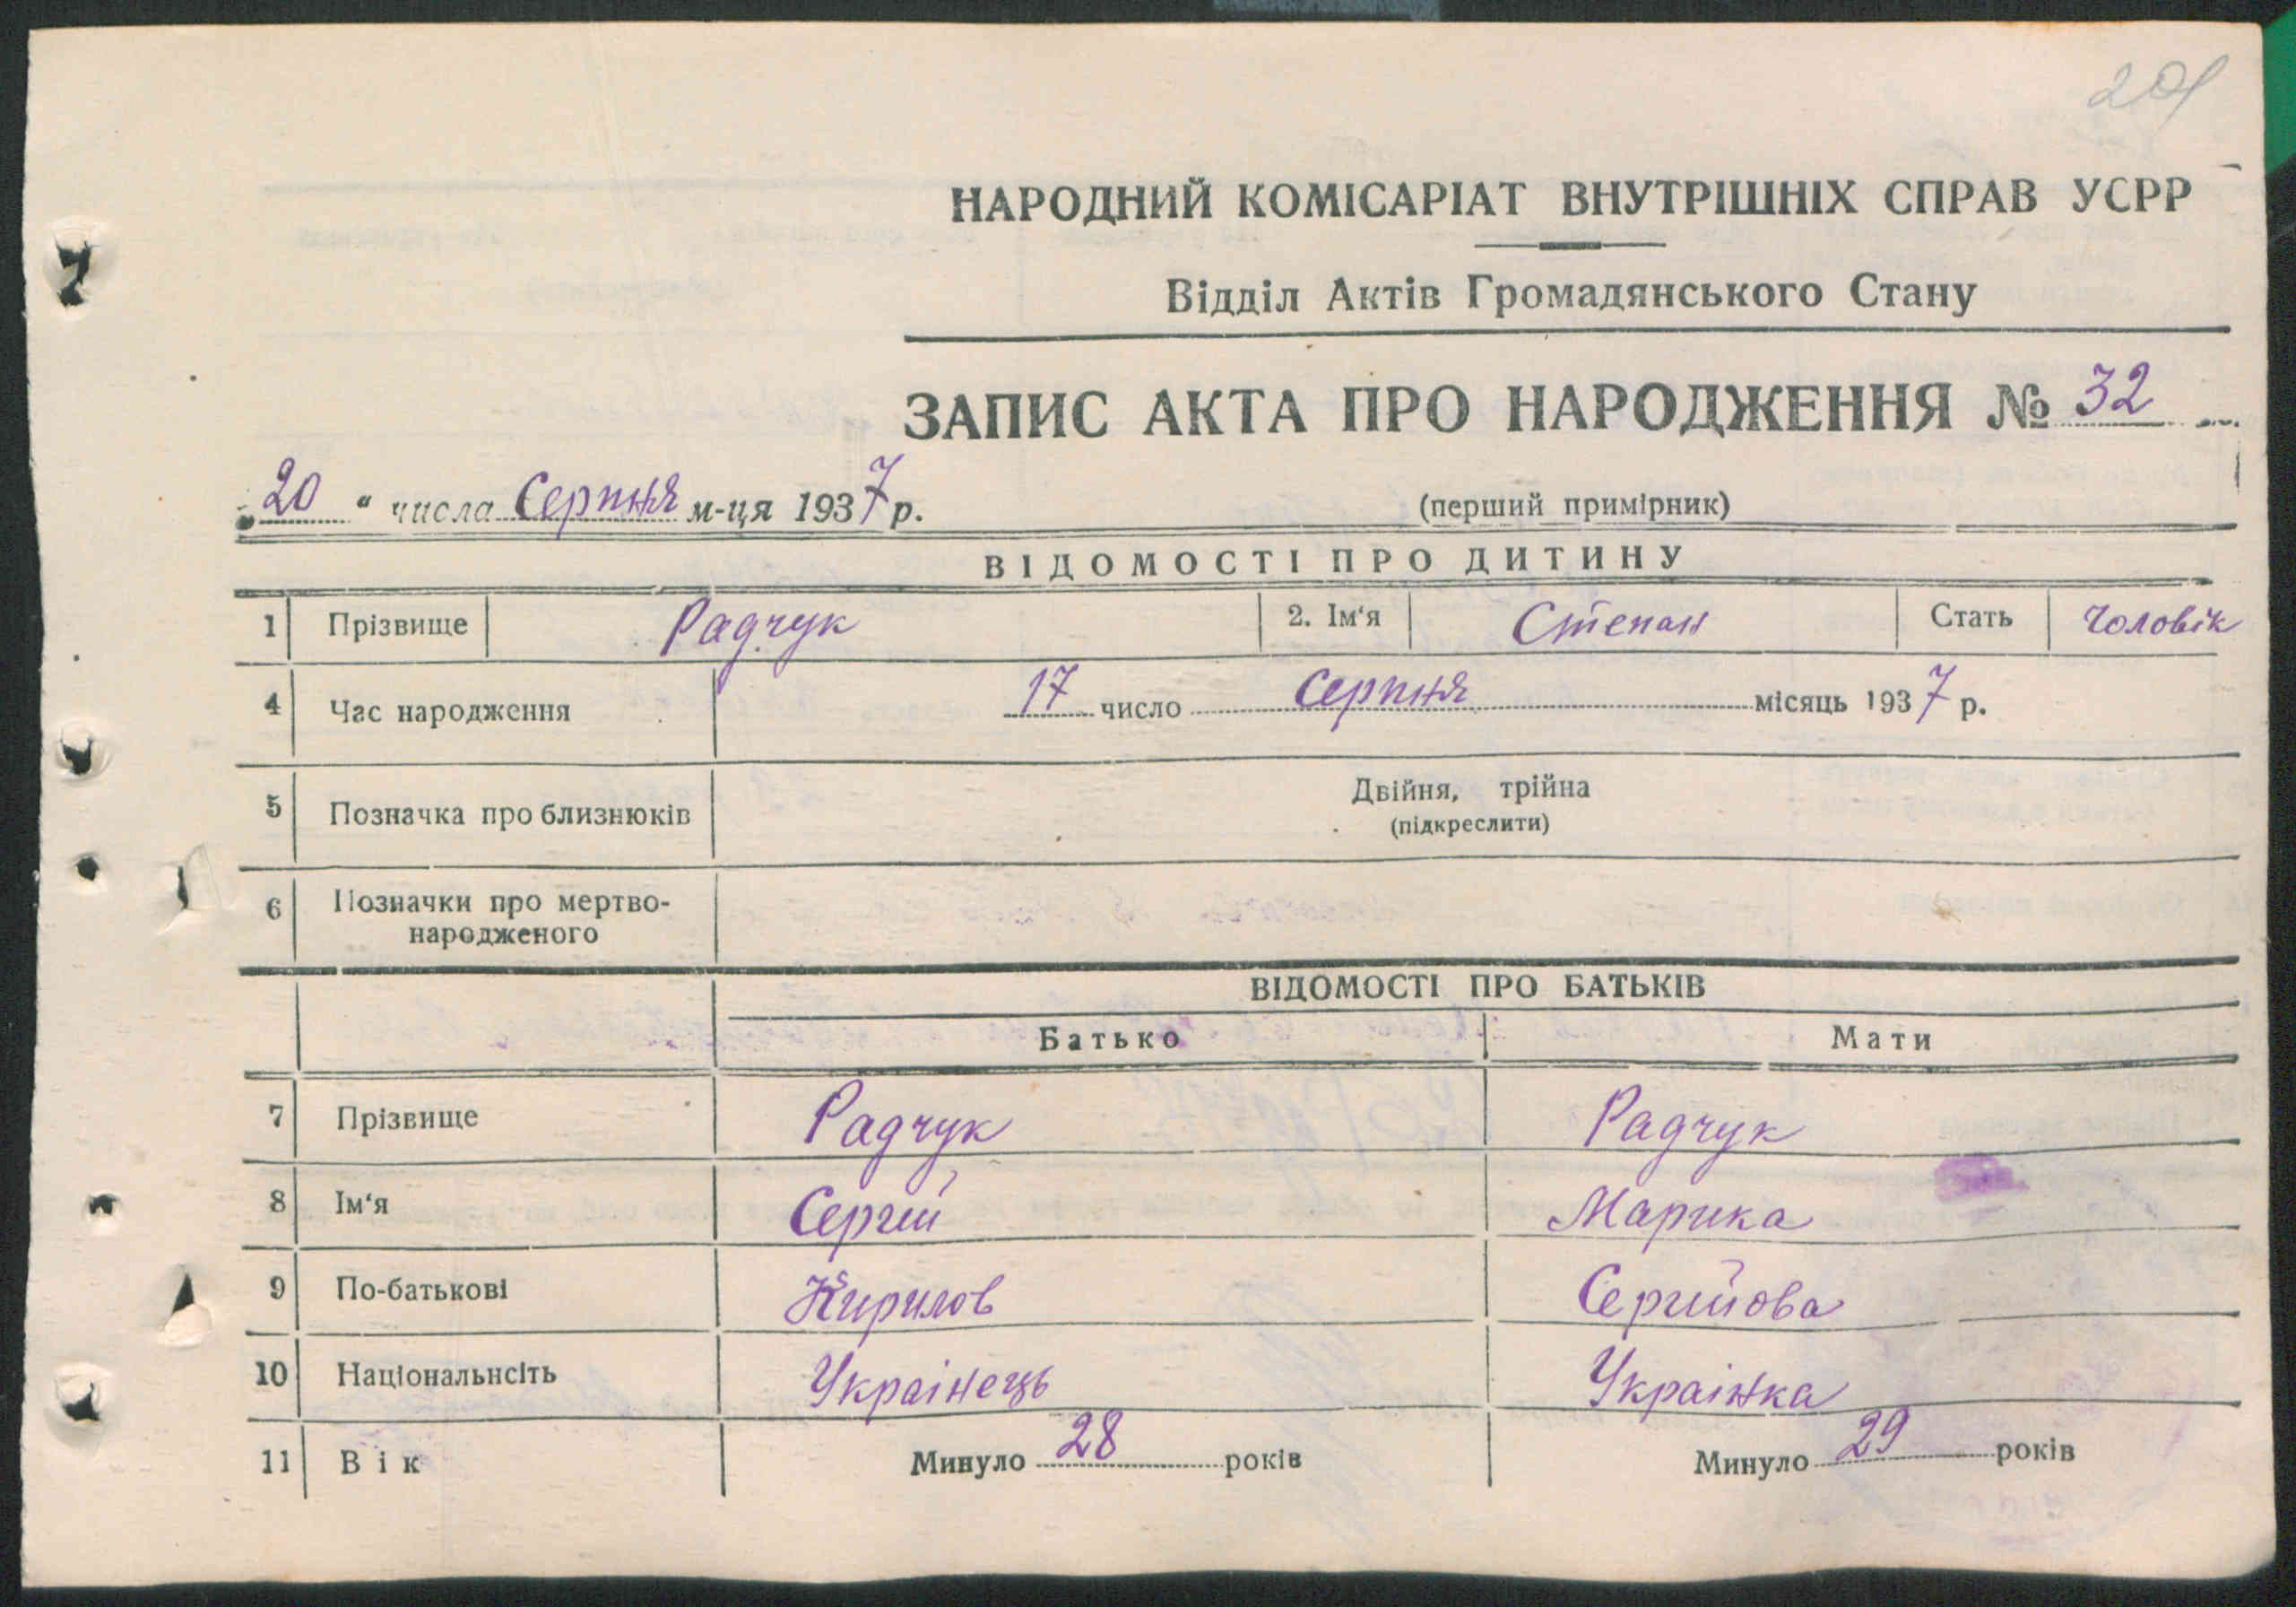 201
НАРОДНИЙ КОМІСАРІАТ ВНУТРІШНІХ СПРАВ УСРР
Відділ Актів Громадянського Стану
ЗАПИС АКТА ПРО НАРОДЖЕННЯ № 32
„20“ числа Серпня м-ця 1937 р.
(перший примірник)
ВІДОМОСТІ ПРО ДИТИНУ
1 Прізвище Радчук 2. Ім‘я Степан Стать Чоловік
4 Час народження 17 число Серпня місяць 1937 р.
5 Позначка про близнюків Двійня, трійна
(підкреслити)
6 Позначки про мертво-
народженого
ВІДОМОСТІ ПРО БАТЬКІВ
Батько Мати
7 Прізвище Радчук Радчук
8 Ім‘я Сергій Марика
9 По-батькові Кирилов Сергийова
10 Національнсіть Українець Українка
11 Вік Минуло 28 років Минуло 29 років